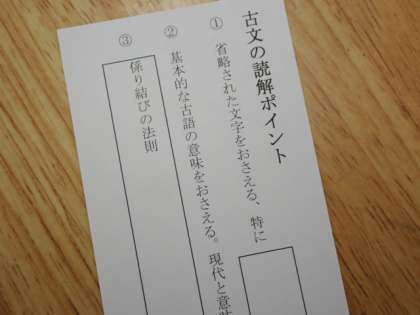 古文の読解ポイント
① 省略された文字をおさえる、特に
② 基本的な古語の意味をおさえる。現代と意味
③ 係り結びの法則